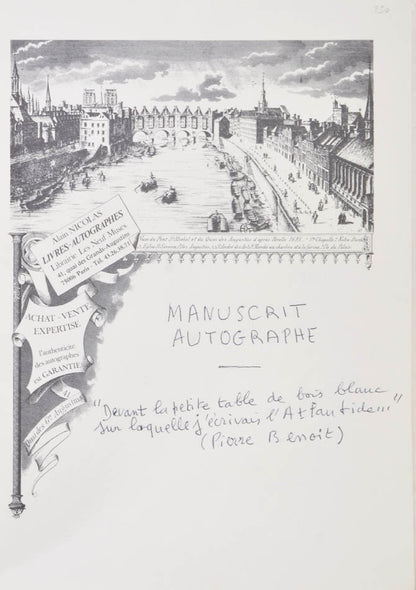 350
Vue du Pont St Michel et du Quai des Augustins d'après
Alain NICOLAS
LIVRES-AUTOGRAPHES
Librairie Les Neuf Muses
41, quai des Grands-Augustins
75006 Paris - Tél. 43.26.38.71
ACHAT - VENTE
EXPERTISE
l'authenticité
des autographes
est GARANTIE
41
Quai des Gds Augustins
MANUSCRIT
AUTOGRAPHE
"Devant la petite table de bois blanc
sur laquelle j'écrivais l'Atlantide..."
(Pierre Benoit)